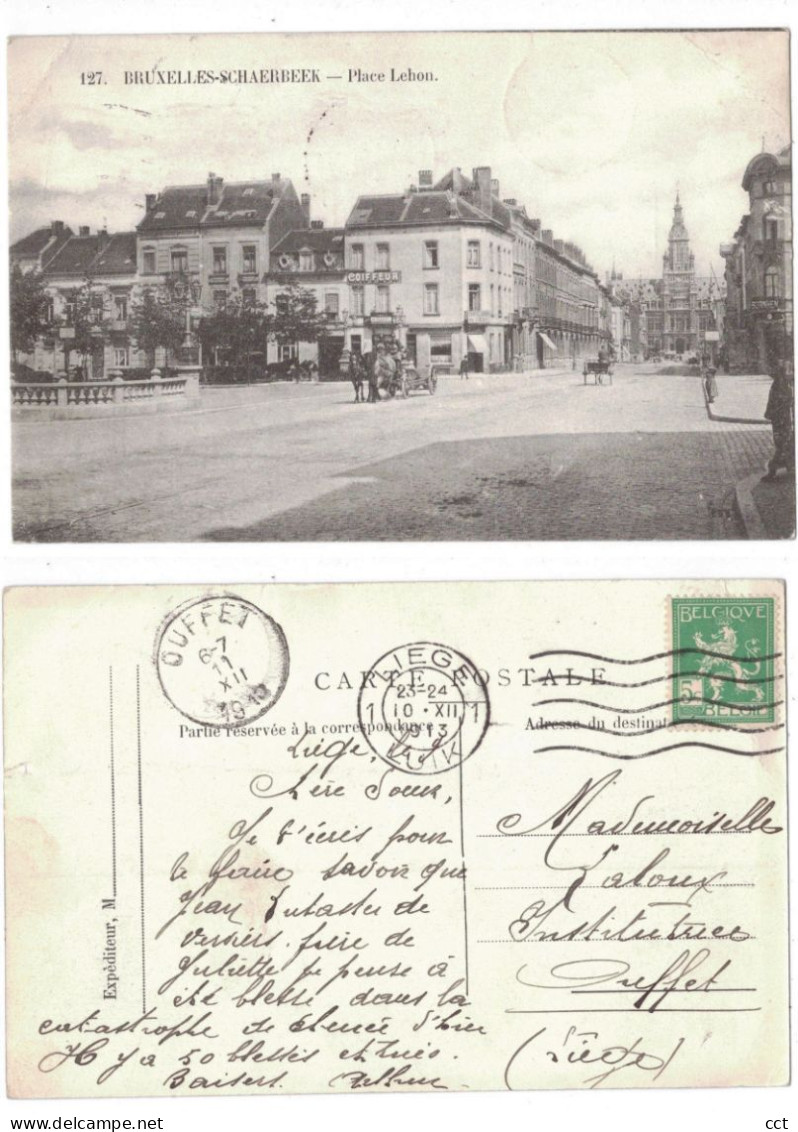 127. BRUXELLES-SCHAERBEEK — Place Lehon.
COIFFEUR
OUFFET
6-7
11
XII
1913
CARTE POSTALE
LIEGE
1 23-24 1
10 · XII
1913
LUIK
BELGIQUE
5c
BELGIË
Partie réservée à la correspondance
Adresse du destinat
Expéditeur, M
Liége,
Chère Soeur,
Je t'écris pour
te faire savoir que
Jean de
Verviers. frère de
Juliette je pense à
été blessé dans la
catastrophe de d'hier
Il y a 50 blessés et tués.
Baisers.
Mademoiselle
Laloux
Institutrice
Ouffet
(Liège)
cct
delcampe.net